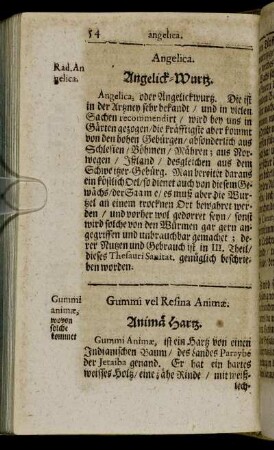 54
angelica.
Rad. An
gelica.
Angelica.
Angelick-Wurtz.
Angelica, oder Angelickwurtz. Die ist
in der Artzney sehr bekandt / und in vielen
Sachen recommendirt / wird bey uns in
Gärten gezogen / die kräfftigste aber kommt
von den hohen Gebürgen / absonderlich aus
Schlesien / Böhmen / Mähren; aus Nor-
wegen / Ißland / desgleichen aus dem
Schweitzer-Gebürg. Man bereitet daraus
ein köstlich Oel / so dienet auch von diesem Ge-
wächs / der Saam / es muß aber die Wur-
tzel an einem trocknen Ort bewahret wer-
den / und vorher wol gedorret seyn / sonst
wird solche von den Würmen gar gern an-
gegriffen und unbrauchbar gemachet; de-
rer Nutzen und Gebrauch ist in III. Theil /
dieses Thesauri Sanitat. genüglich beschrie-
ben worden.
Gummi
animæ,
wovon
solche
kommet
Gummi vel Resina Animæ.
Animä Hartz.
Gummi Animæ, ist ein Hartz von einen
Indianischen Baum / des Landes Paraybe
der Jetaiba genand. Er hat ein hartes
weisses Holtz / eine zähe Rinde / mit weiß-
lech-